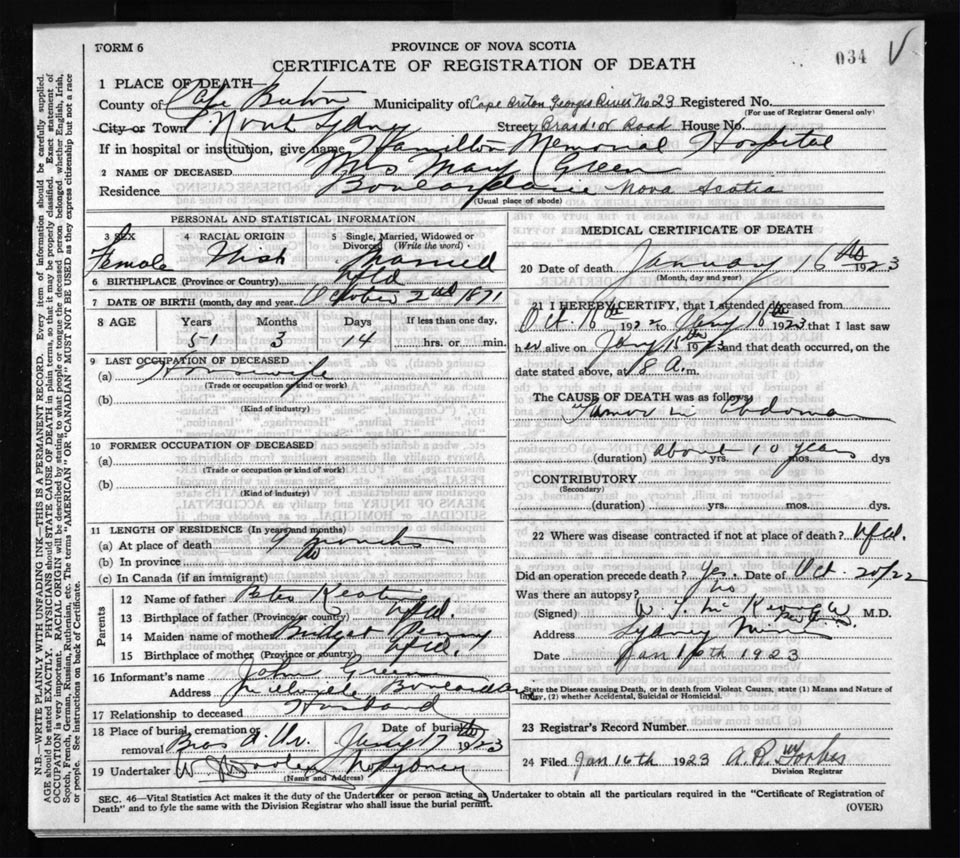 FORM 6
PROVINCE OF NOVA SCOTIA
CERTIFICATE OF REGISTRATION OF DEATH
034 V
1 PLACE OF DEATH
County of Cape Breton Municipality of Cape Breton Georges River No 23 Registered No.
(For use of Registrar General only)
City or Town North Sydney Street Brasd'or Road House No.
If in hospital or institution, give name Hamilton Memorial Hospital
2 NAME OF DECEASED Mrs Mary Green
Residence Boulardarie Nova Scotia
(Usual place of abode)
PERSONAL AND STATISTICAL INFORMATION
3 SEX Female
4 RACIAL ORIGIN Irish
5 Single, Married, Widowed or Divorced (Write the word) Married
6 BIRTHPLACE (Province or Country) Nfld
7 DATE OF BIRTH (month, day and year) October 2nd 1871
8 AGE Years Months Days If less than one day,
51 3 14 hrs. or min.
9 LAST OCCUPATION OF DECEASED
(a) Housewife
(Trade or occupation or kind or work)
(b)
(Kind of industry)
10 FORMER OCCUPATION OF DECEASED
(a)
(Trade or occupation or kind of work)
(b)
(Kind of industry)
11 LENGTH OF RESIDENCE (In years and months)
(a) At place of death 9 months
(b) In province do
(c) In Canada (if an immigrant)
Parents
12 Name of father
13 Birthplace of father (Province or country) Nfld.
14 Maiden name of mother Bridget Penny
15 Birthplace of mother (Province or country) Nfld.
16 Informant's name John Green
Address Millville Boulardarie
17 Relationship to deceased Husband
18 Place of burial, cremation or removal Bras d'Or Date of burial Jany 17th 1923
19 Undertaker W. Dooley No Sydney
(Name and Address)
MEDICAL CERTIFICATE OF DEATH
20 Date of death January 16th 1923
(Month, day and year)
21 I HEREBY CERTIFY, that I attended deceased from
Oct. 18th 1922 to Jany 16th 1923 that I last saw
her alive on Jany 1923 and that death occurred, on the
date stated above, at 8 A.m.
The CAUSE OF DEATH was as follows:
Tumor in abdomen
(duration) about yrs. 10 years mos. dys
CONTRIBUTORY
(Secondary)
(duration) yrs. mos. dys.
22 Where was disease contracted if not at place of death? Nfld.
Did an operation precede death? Yes. Date of Oct. 20/22
Was there an autopsy? No
(Signed) M.D.
Address Sydney Mines
Date Jan 16th 1923
State the Disease causing Death, or in death from Violent Causes, state (1) Means and Nature of Injury, (2) whether Accidental, Suicidal or Homicidal.
23 Registrar's Record Number
24 Filed Jan 16th 1923 A. R. Forbes
Division Registrar
SEC. 46—Vital Statistics Act makes it the duty of the Undertaker or person acting as Undertaker to obtain all the particulars required in the "Certificate of Registration of
Death" and to fyle the same with the Division Registrar who shall issue the burial permit.
(OVER)
N.B.—WRITE PLAINLY WITH UNFADING INK—THIS IS A PERMANENT RECORD. Every item of information should be carefully supplied.
AGE should be stated EXACTLY. PHYSICIANS should STATE CAUSE OF DEATH in plain terms, so that it may be properly classified. Exact statement of
OCCUPATION is very important. RACIAL ORIGIN will be described by stating to what people or tongue the deceased person belonged, whether English, Irish,
Scotch, French, German, Russian, Ruthenian, etc. The terms "AMERICAN" OR "CANADIAN" MUST NOT BE USED as they express citizenship but not a race
or people. See instructions on back of Certificate.